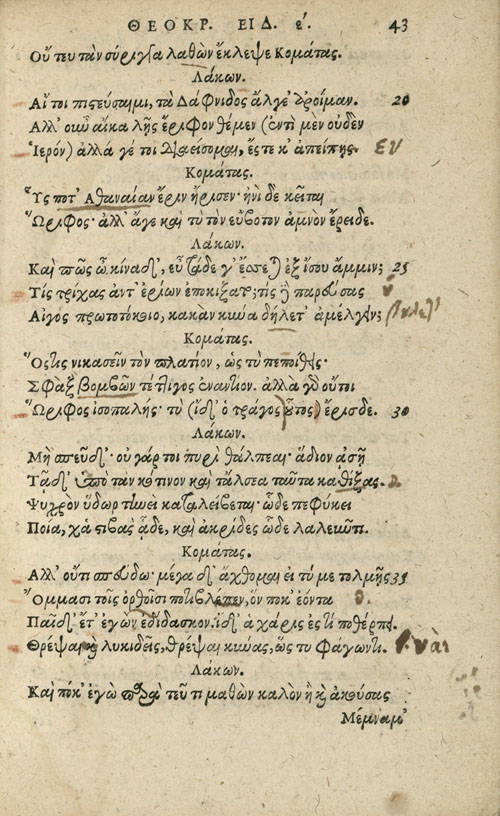 ΘΕΟΚΡ. ΕΙΔ. ε'. 43
Οὔ τευ τὰν σύριγγα λαθὼν ἔκλεψε Κομάτας.
Λάκων.
Αἴ τοι πιστεύσαιμι, τὰ Δάφνιδος ἄλγε' ἀροίμαν. 20
Ἀλλ' οὖν αἴκα λῇς ἔριφον θέμεν (ἐντὶ μὲν οὐδὲν
Ἱερόν) ἀλλά γέ τοι διαείσομαι, ἔστε κ' ἀπείπῃς. ΕΥ
Κομάτας.
Ὗς ποτ' Ἀθαναίαν ἔριν ἤρισεν· ἠνὶ δὲ κεῖται
Ὥριφος· ἀλλ' ἄγε καὶ τὺ τὸν εὔβοτον ἀμνὸν ἔρειδε.
Λάκων.
Καὶ πῶς ὦ κίναδ', εὖ τάδε γ' ἔσσεται ἐξ ἴσου ἄμμιν; 25
Τίς τρίχας ἀντ' ἐρίων ἐποκίξατ; τίς ἢ παρούσας
Αἰγὸς πρωτοτόκοιο, κακὰν κύνα δήλετ' ἀμέλγειν;
Κομάτας.
Ὅστις νικασεῖν τὸν πλατίον, ὡς τὺ πεποίθεις·
Σφὰξ βομβῶν τέττιγος ἐναντίον. ἀλλὰ γὰρ οὔτοι
Ὥριφος ἰσοπαλής· τὺ (ἴδ' ὁ τράγος οὗτος) ἔρισδε. 30
Λάκων.
Μὴ σπεῦδ'· οὐ γάρ τοι πυρὶ θάλπεαι· ἅδιον ἀσῇ
Τᾷδ' ὑπὸ τὰν κότινον καὶ τἄλσεα ταῦτα καθίξας.
Ψυχρὸν ὕδωρ τηνεὶ καταλείβεται· ὧδε πεφύκει
Ποία, χἀ στιβὰς ἅδε, καὶ ἀκρίδες ὧδε λαλεῦντι.
Κομάτας.
Ἀλλ' οὔτι σπεύδω· μέγα δ' ἄχθομαι εἰ τύ με τολμῇς 35
Ὄμμασι τοῖς ὀρθοῖσι ποτιβλέπεν, ὅν ποκ' ἐόντα
Παῖδ' ἔτ' ἐγὼν ἐδίδασκον. ἴδ' ἁ χάρις ἐς τί ποθέρπει.
Θρέψαι καὶ λυκιδεῖς, θρέψαι κύνας, ὥς τυ φάγωντι. ναι
Λάκων.
Καὶ πόκ' ἐγὼ παρὰ τεῦ τι μαθὼν καλὸν ἢ καὶ ἀκούσας
Μέμναμ'